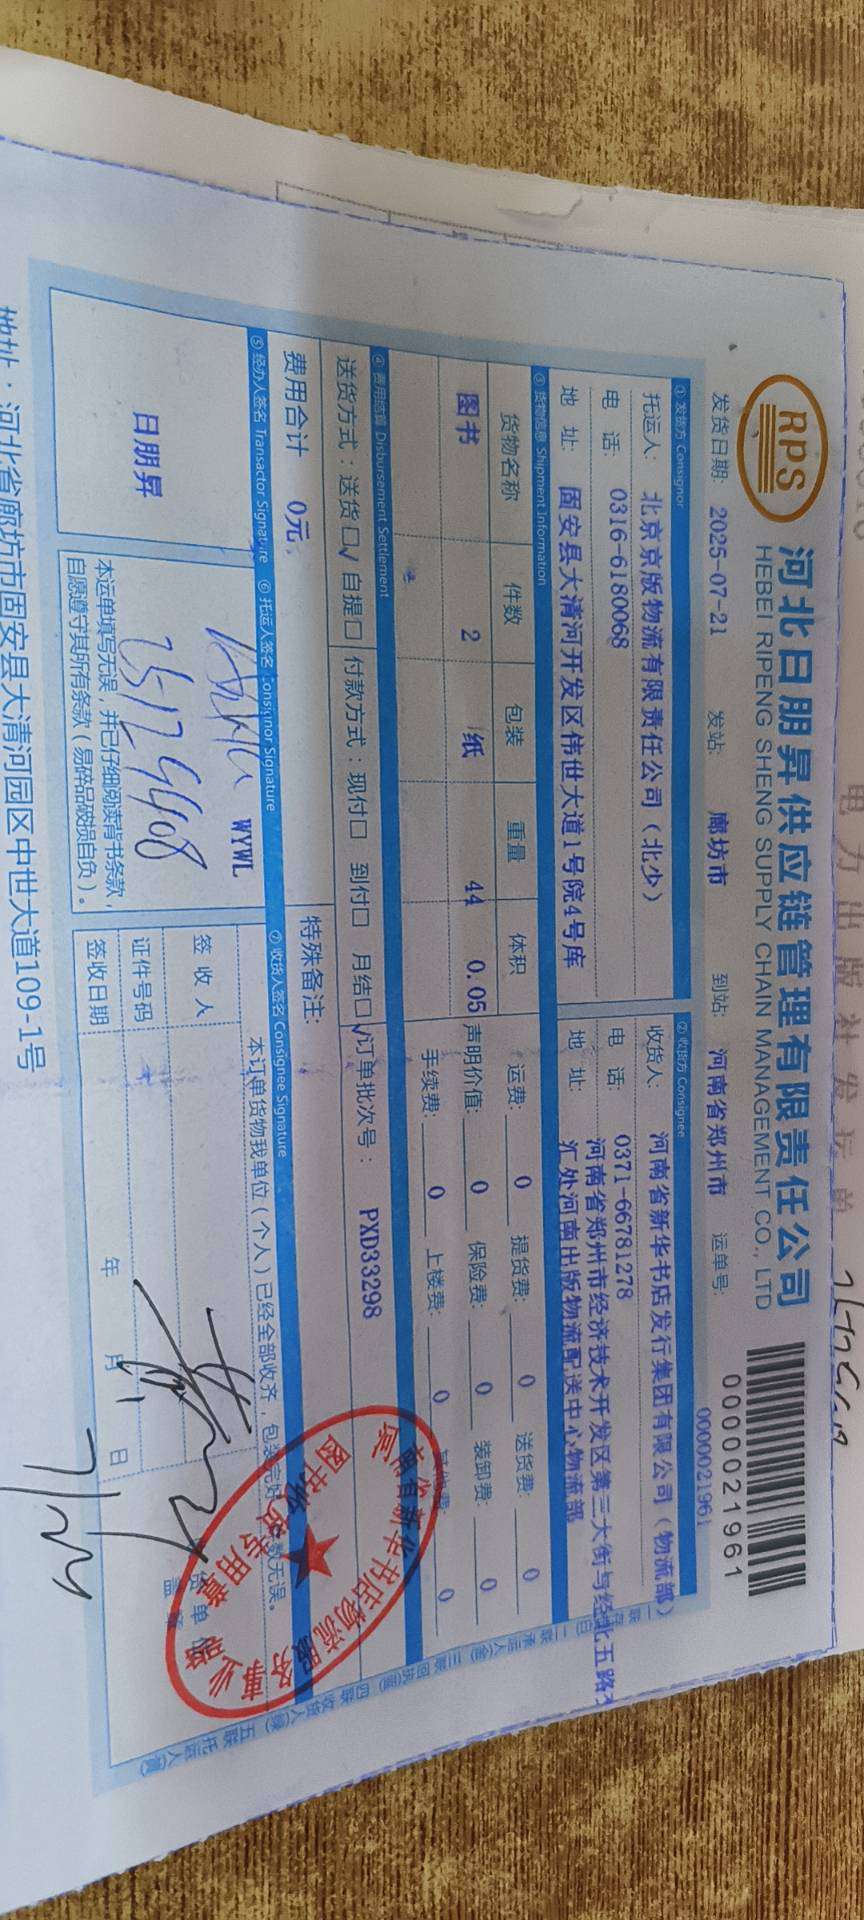 电力出版社发货单
RPS
河北日朋昇供应链管理有限责任公司
HEBEI RIPENG SHENG SUPPLY CHAIN MANAGEMENT CO., LTD
0000021961
发货日期: 2025-07-21 发站: 廊坊市 到站: 河南省郑州市 运单号: 0000021961
① 发货方 Consignor ② 收货方 Consignee
托运人: 北京京版物流有限责任公司(北少) 收货人: 河南省新华书店发行集团有限公司(物流部)
电 话: 0316-6180068 电 话: 0371-66781278
地 址: 固安县大清河开发区伟世大道1号院4号库 地 址: 河南省郑州市经济技术开发区第三大街与经北五路交
汇处河南出版物流配送中心物流部
③ 货物信息 Shipment Information
货物名称 件数 包装 重量 体积 运费: 0 提货费: 0 送货费: 0
图书 2 纸 44. 0.05 声明价值: 0 保险费: 0 装卸费: 0
手续费: 0 上楼费: 0 其他费: 0
④ 费用结算 Disbursement Settlement
送货方式: 送货□√ 自提□ 付款方式: 现付□ 到付□ 月结□√ 订单批次号: PXD33298
费用合计 0元, 特殊备注:
⑤ 经办人签名 Transactor Signature ⑥ 托运人签名 Consignor Signature ⑦ 收货人签名 Consignee Signature
日朋昇
WYWL
本运单填写无误,并已仔细阅读背书条款,
自愿遵守其所有条款(易碎品破损自负)。
本订单货物我单位(个人)已经全部收齐,包装完好 数无误。
签收人
证件号码
签收日期 年 月 日
7/24
河南省新华书店物流服务事业部
图书收货专用章
地址:河北省廊坊市固安县大清河园区中世大道109-1号